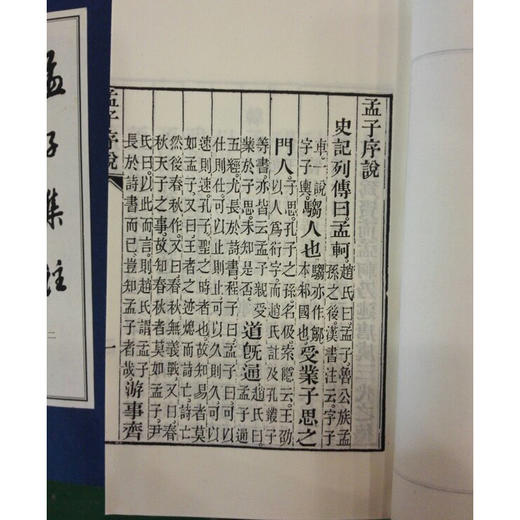 孟子序說
史記列傳曰孟軻
趙氏曰孟子魯公族孟
孫之後漢書注云字子
車一說
字子輿
騶人也
騶亦作鄒
本邾國也
受業子思之
門人
子思孔子之孫名伋索隱云王劭
以人爲衍字而趙氏註及孔叢子
等書亦皆云孟子親受
業於子思未知是否
道旣通
趙氏曰
孟子通
五經尤長於詩書程子曰孟子曰可以
仕則仕可以止則止可以久則久可以
速則速孔子聖之時者也故知易者莫
如孟子又曰王者之迹熄而詩亡詩亡
然後春秋作又曰春秋無義戰又曰春
秋天子之事故知春秋者莫如孟子尹
氏曰以此而言則趙氏謂孟子
長於詩書而已豈知孟子者哉
游事齊
孟子序說
一
孟子集註